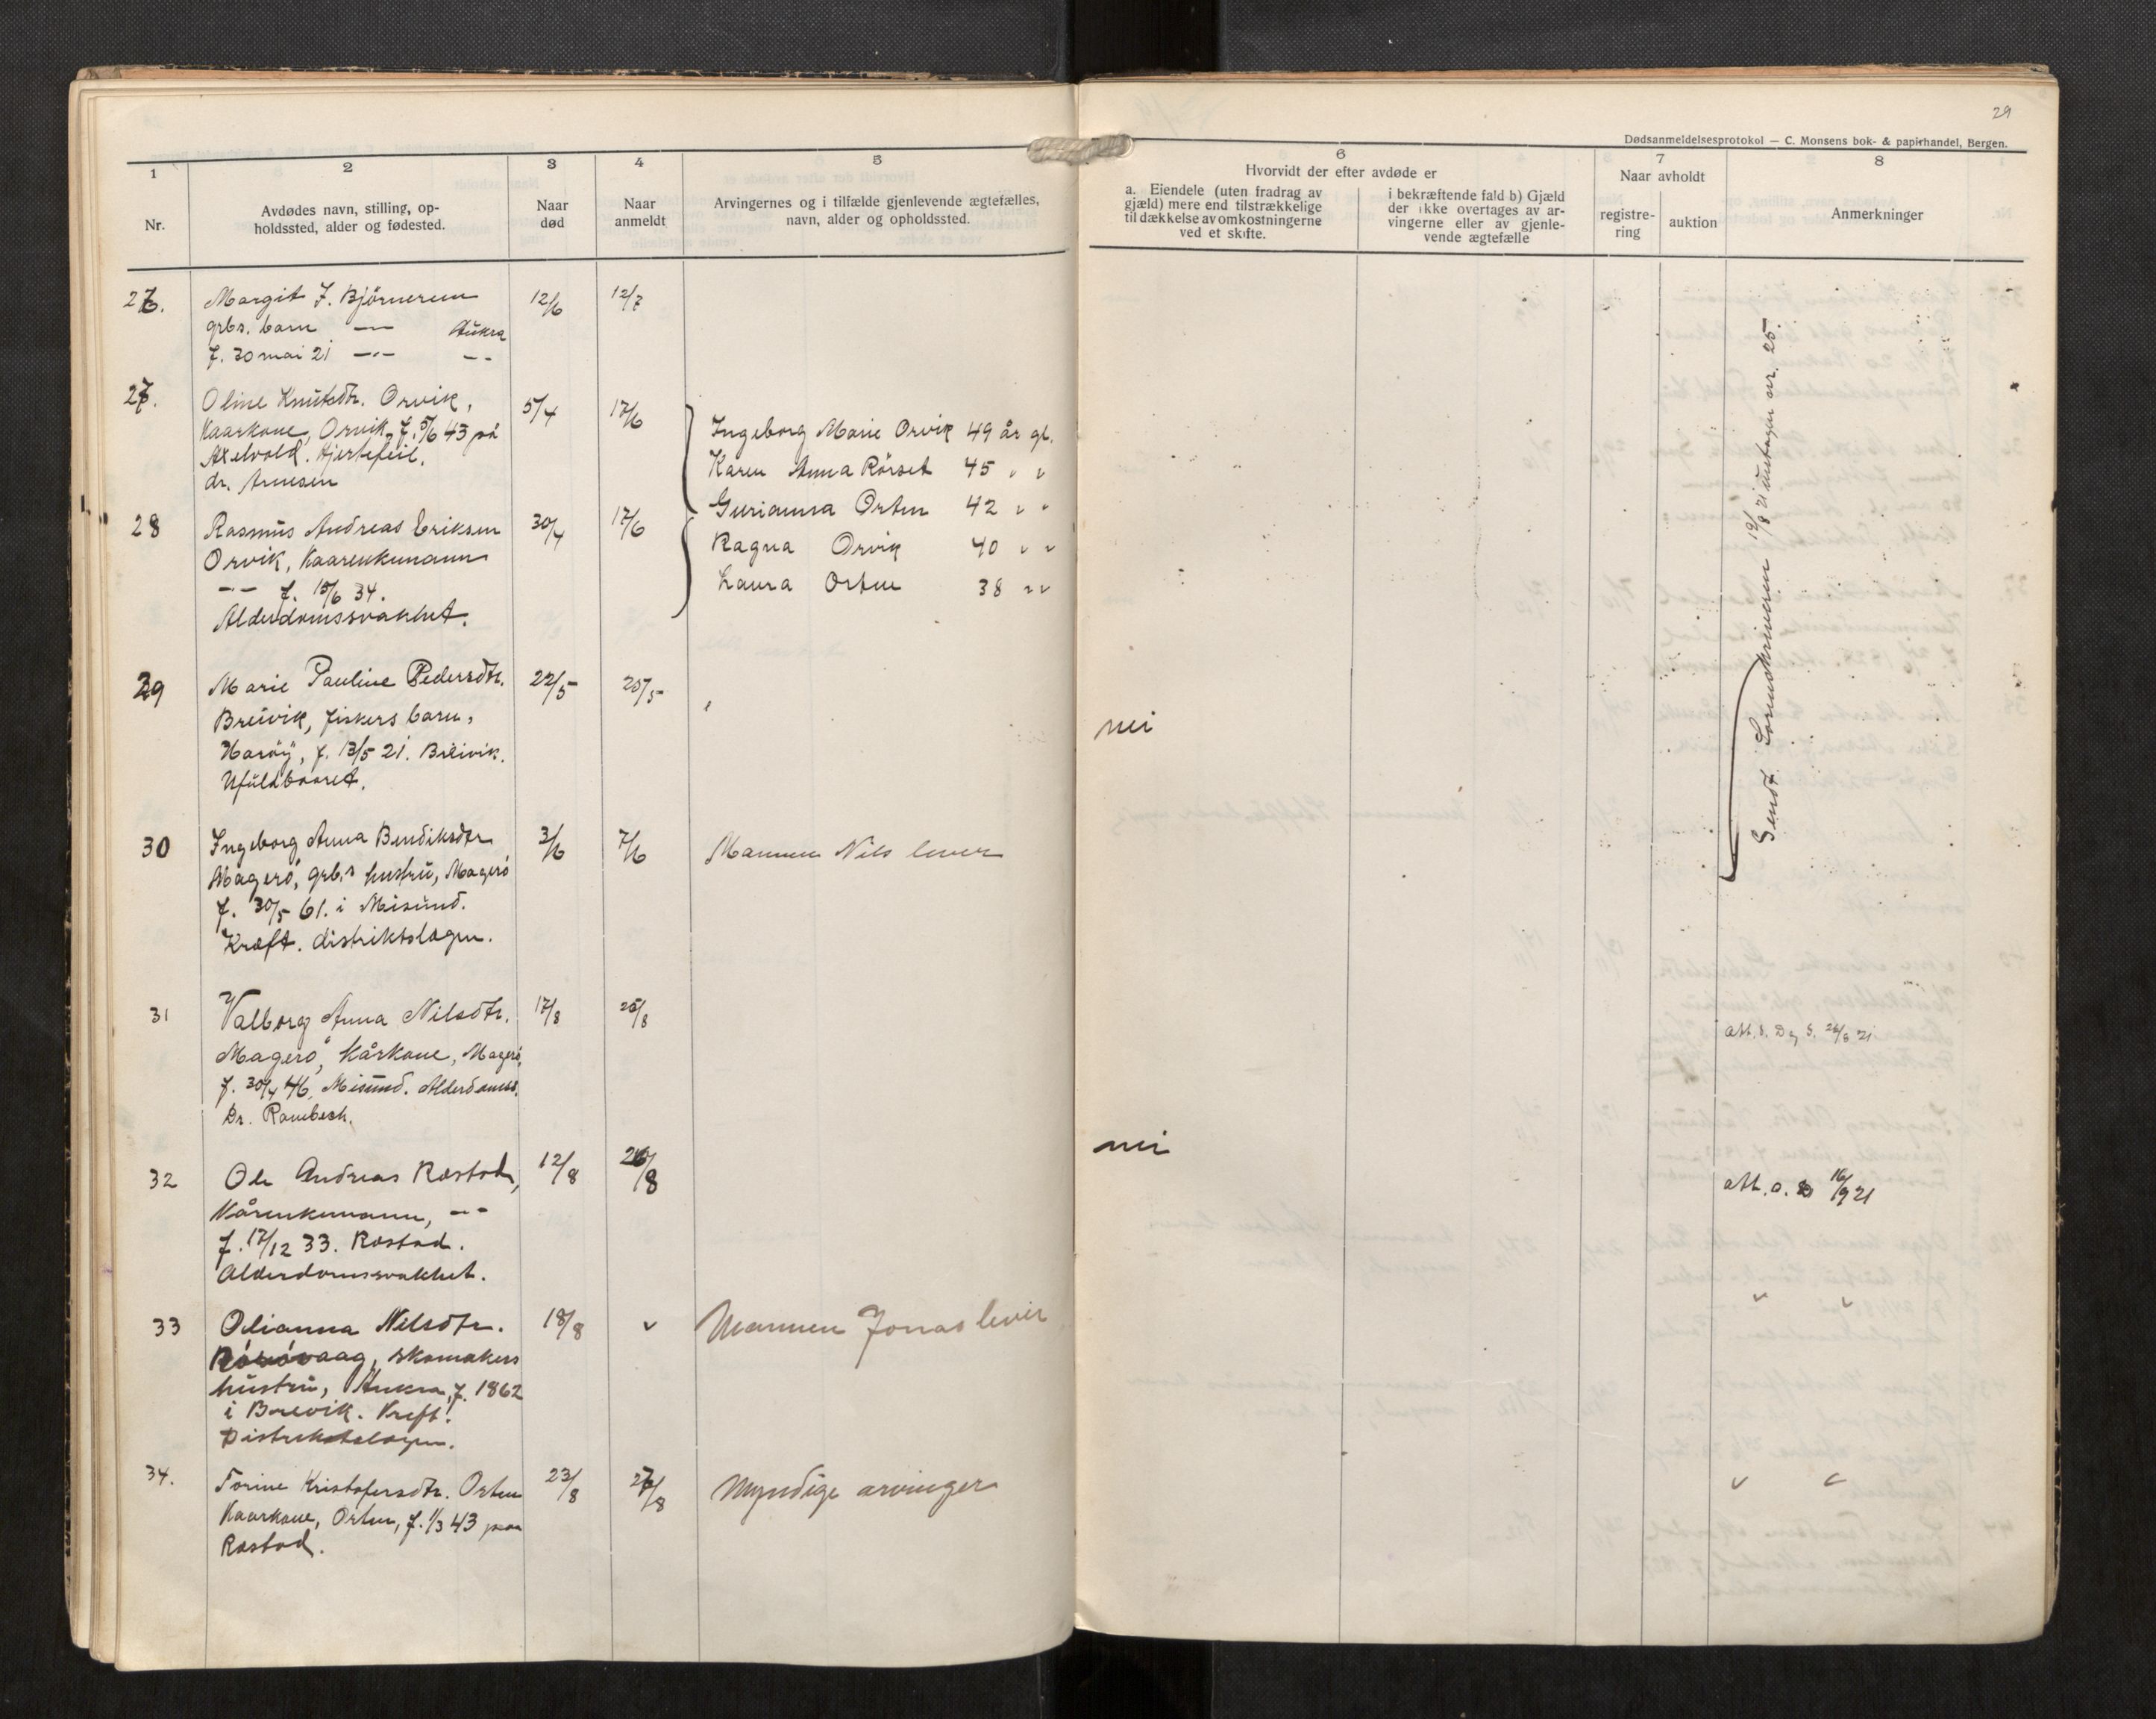 29
Dødsanmeldelsesprotokol — C. Monsens bok- & papirhandel, Bergen.
1
Nr.
2
Avdødes navn, stilling, op-
holdssted, alder og fødested.
3
Naar
død
4
Naar
anmeldt
5
Arvingernes og i tilfælde gjenlevende ægtefælles,
navn, alder og opholdssted.
6
Hvorvidt der efter avdøde er
a. Eiendele (uten fradrag av
gjæld) mere end tilstrækkelige
til dækkelse av omkostningerne
ved et skifte.
i bekræftende fald b) Gjæld
der ikke overtages av ar-
vingerne eller av gjenle-
vende ægtefælle
7
Naar avholdt
registre-
ring
auktion
8
Anmerkninger
26. Margit J. Bjørnerem 12/6 12/7
grbs. barn —"— Aukra
f. 30 mai 21 —"— —"—
27. Oline Knutsdtr. Orvik, 5/4 17/6
Kaarkone, Orvik, f. 5/6 43 på
Axelvold. Hjertefeil.
dr. Arnesen
Ingeborg Marie Orvik 49 år gl.
Karen Anna Rørset 45 " "
Gurianna Orten 42 " "
Ragna Orvik 40 " "
Laura Orten 38 " "
28 Rasmus Andreas Eriksen 30/4 17/6
Orvik, Kaarenkemann
—"— f. 15/6 34.
Alderdomssvakhet.
29 Marie Pauline Pedersdtr. 22/5 25/5
Breivik, fiskers barn,
Harøy, f. 13/5 21. Breivik.
Ufuldbaaret.
nei
30 Ingeborg Anna Bendiksdtr 3/6 7/6 Mannen Nils lever
Magerø, grb.s hustru, Magerø
f. 30/5 61. i Misund.
Kræft. distriktslægen.
Sendt Sorenskriveren 19/8 21 undtagen nr. 25.
31 Valborg Anna Nilsdtr. 17/8 25/8
Magerø, Kårkone, Magerø,
f. 30/4 46, Misund. Alderdomss.
Dr. Rambech.
att. s. D 26/8 21
nei
32 Ole Andreas Rostad, 12/8 26/8
Kårenkemann, —"—
f. 17/12 33. Rostad.
Alderdomssvakhet.
att. o. 16/9 21
33 Olianna Nilsdtr. 18/8 " Mannen Jonas lever
skomakers
hustru, Aukra, f. 1862
i Breivik. Kreft.
Distriktslægen.
" "
34. Torine Kristofersdtr. Orten 23/8 27/8 Myndige arvinger
Kaarkone, Orten, f. 1/3 43 paa
Rostad.
" "